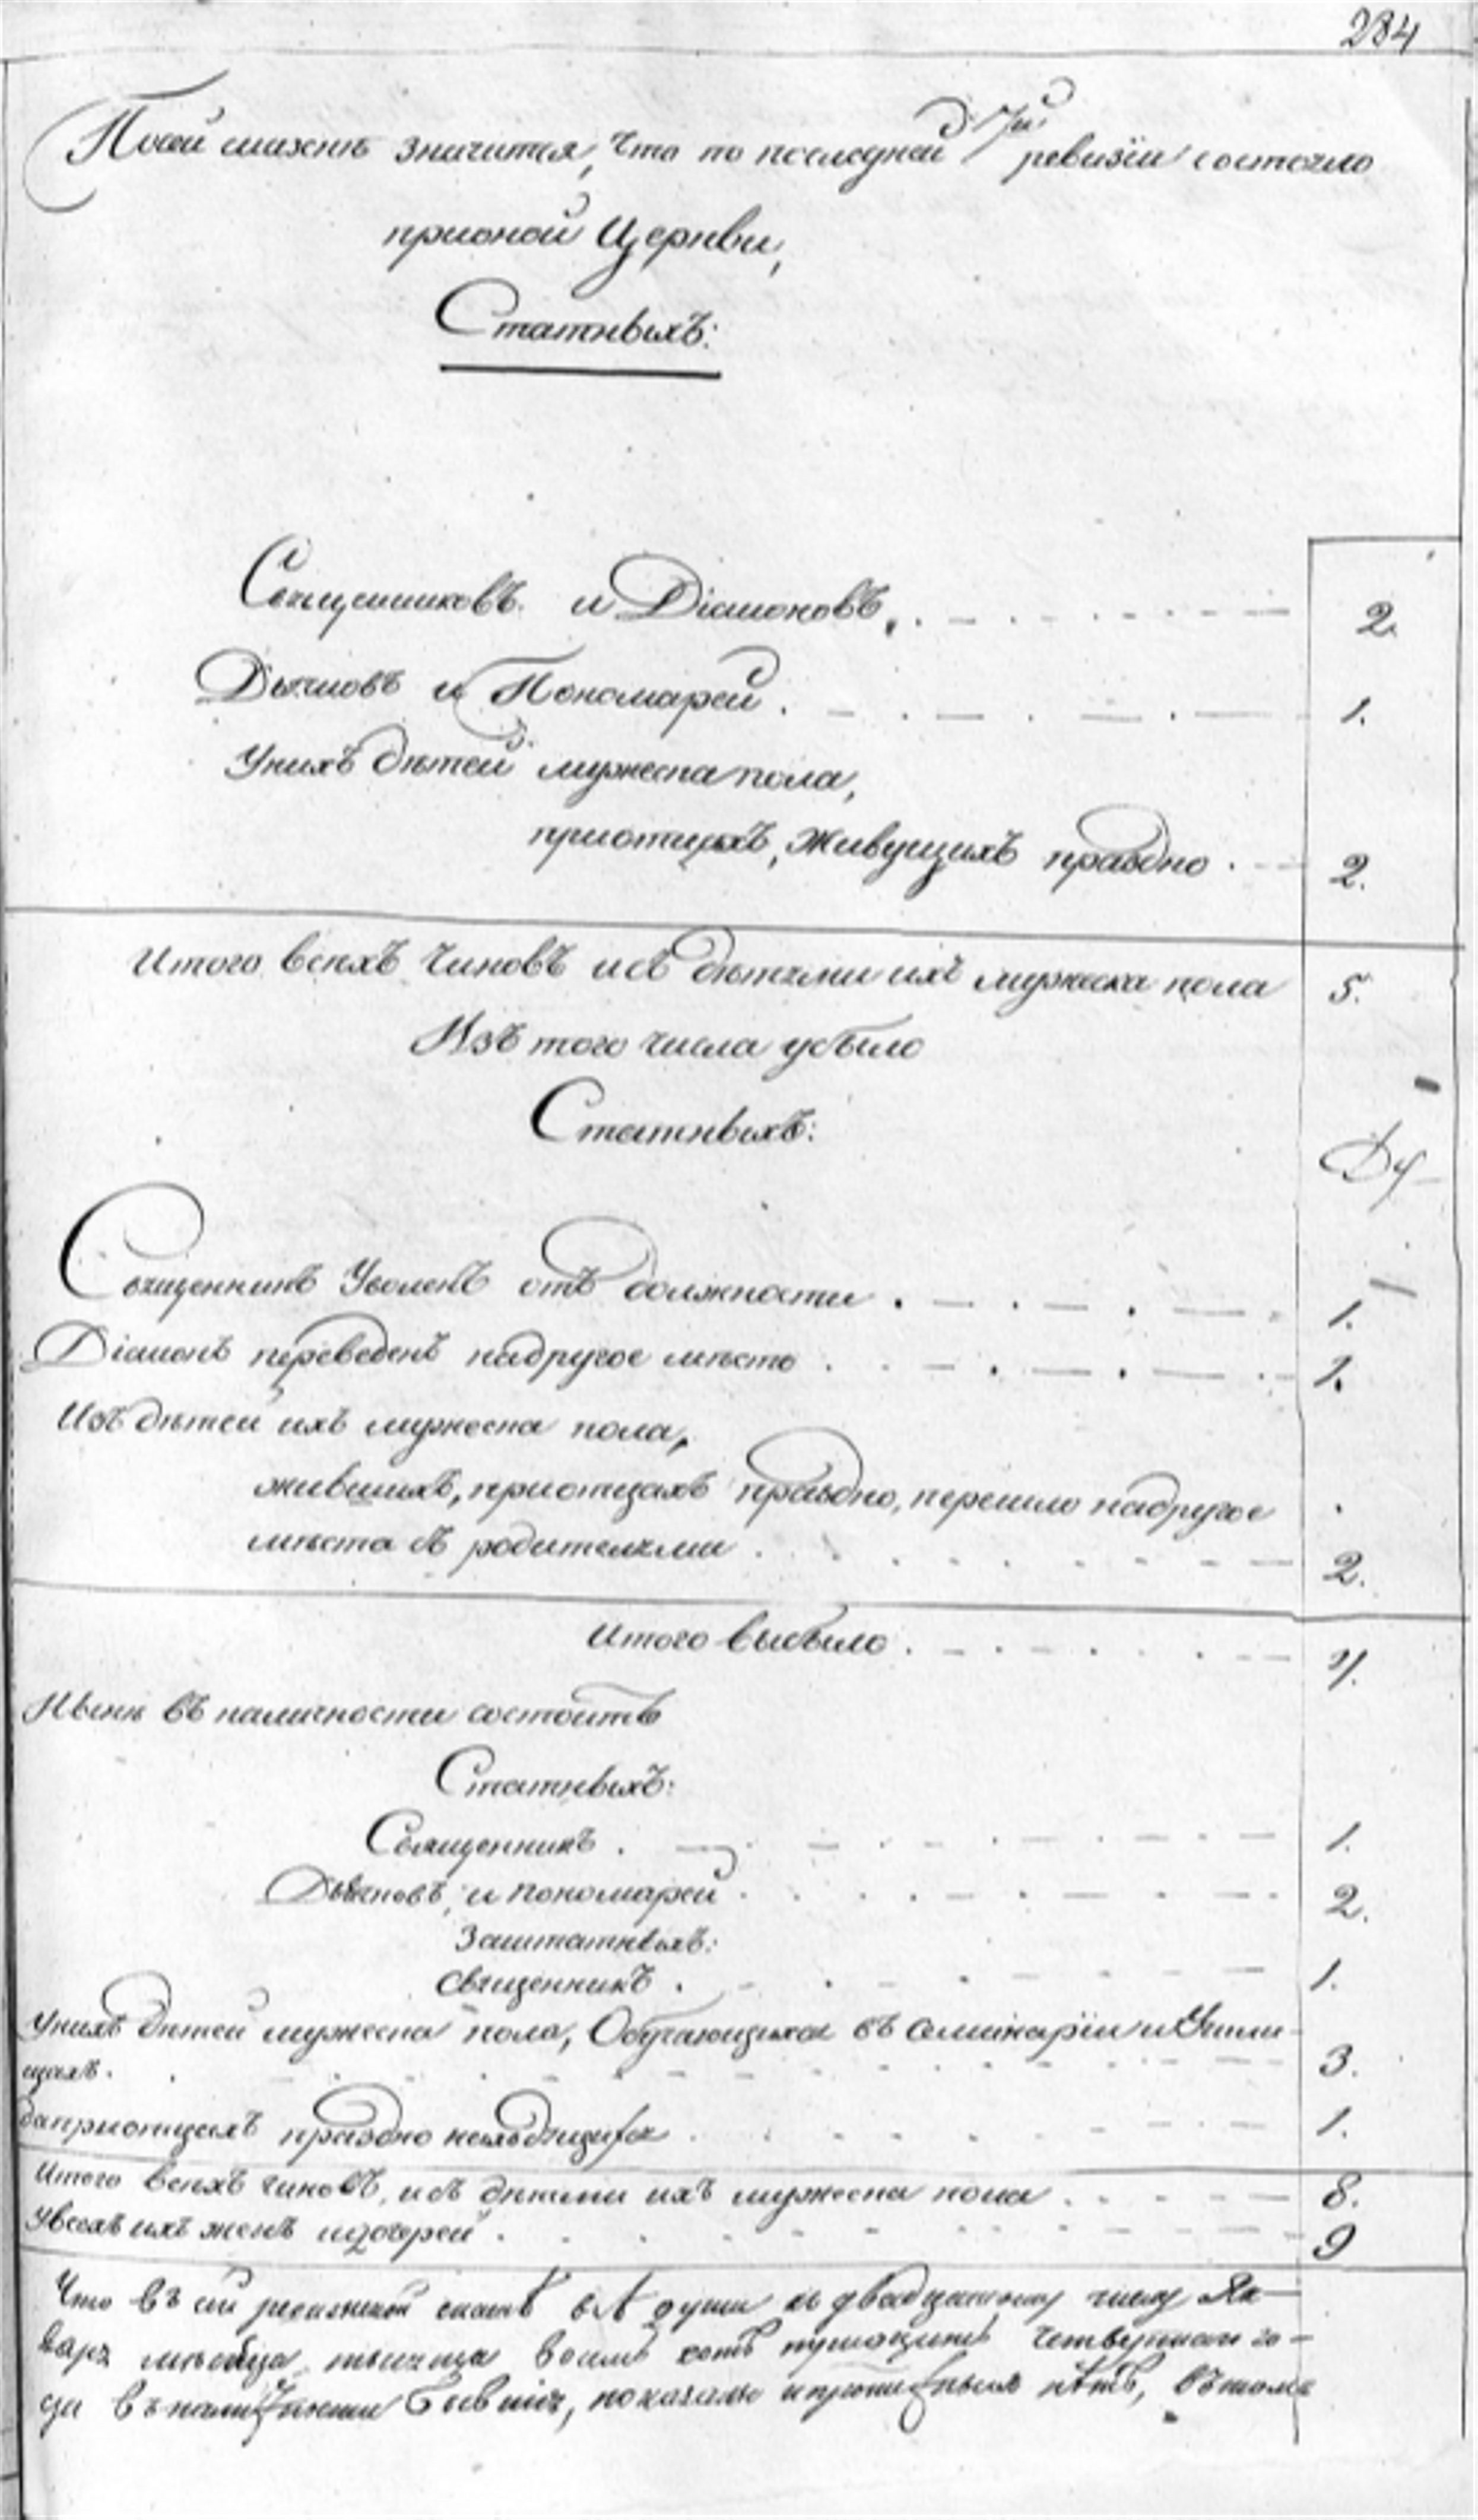 284
По сей скаске значится, что по последней 7й ревизіи состояло
при оной Церкви,
Статныхъ:
Священниковъ и Діаконовъ, 2.
Дьячковъ и Пономарей. 1.
У нихъ детей мужеска пола,
при отцахъ, живущихъ праздно. 2.
Итого всехъ чиновъ и съ детями ихъ мужеска пола 5.
Изъ того числа убыло
Статныхъ:
Священникъ уволенъ отъ должности. 1.
Діаконъ переведенъ на другое место. 1.
Изъ детей ихъ мужеска пола,
жившихъ, при отцахъ праздно, перешло на другое
места съ родителями. 2.
Итого выбыло. 4.
Ныне въ наличности состоитъ
Статныхъ:
Священникъ. 1.
Дьячковъ, и пономарей. 2.
Заштатныхъ:
священникъ. 1.
У нихъ детей мужеска пола, Обучающихся въ семинаріи и Учили-
щахъ. 3.
да при отцахъ праздно находящихся 1.
Итого всехъ чиновъ, и съ детями ихъ мужеска пола. 8.
У всехъ ихъ женъ и дочерей. 9
Что въ сей ревизской скаскѣ всѣ души къ двадцатому числу Ян-
варя мѣсяца тысяща восимъ сотъ тритцать четвертаго го-
да въ наличности бывшія, показаны и прописныхъ нѣтъ, въ томъ